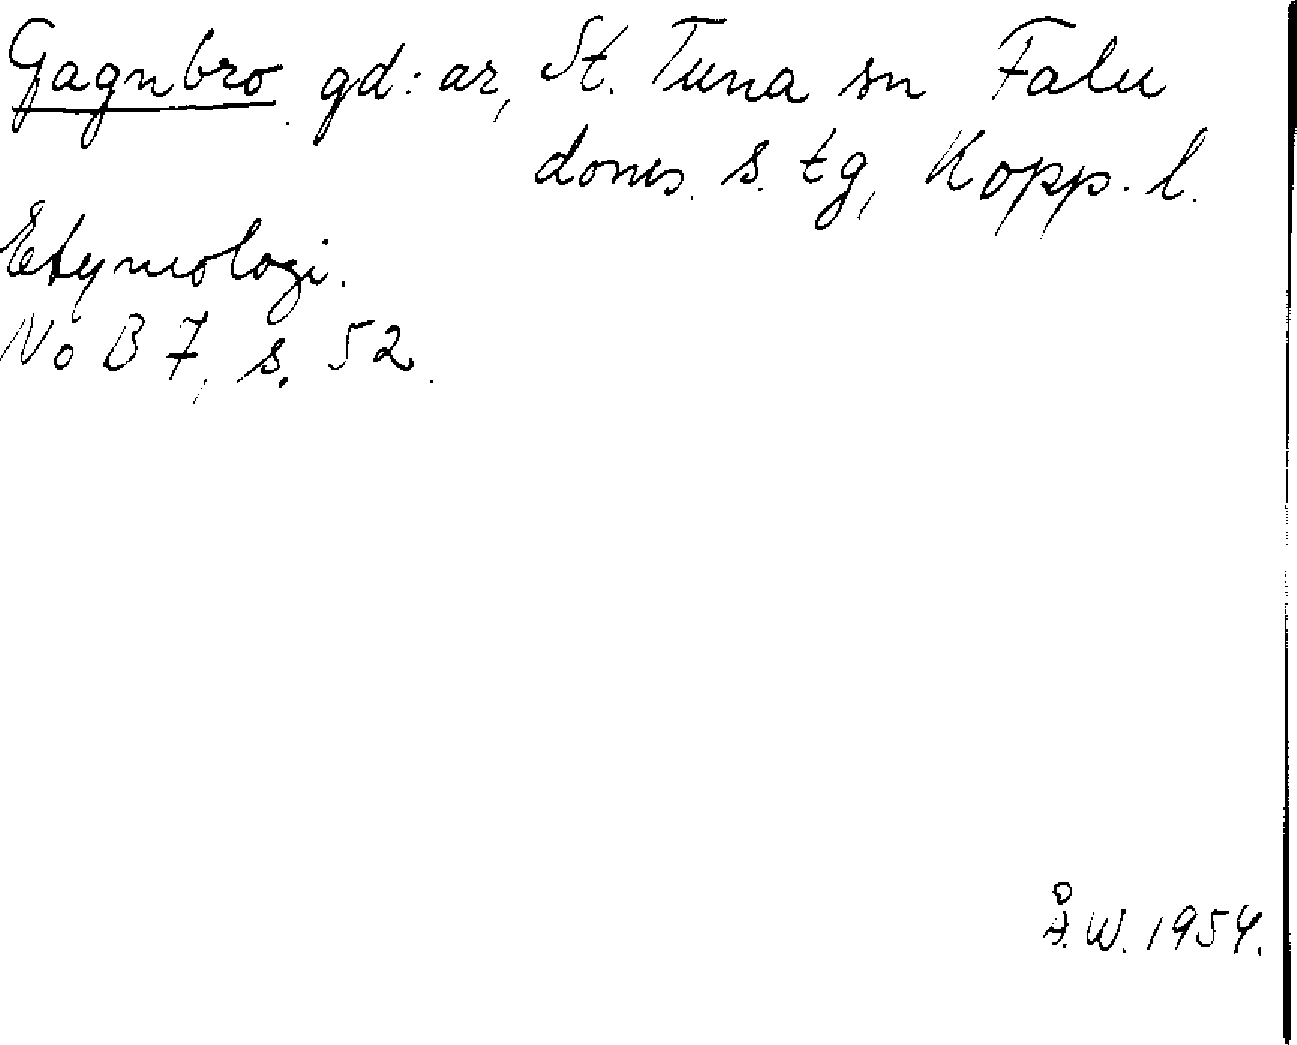 Gagnbro gd:ar, St. Tuna sn Falu
doms. s. tg, Kopp. l.
Etymologi.
NoB 7, s. 52.
Å.W. 1954.